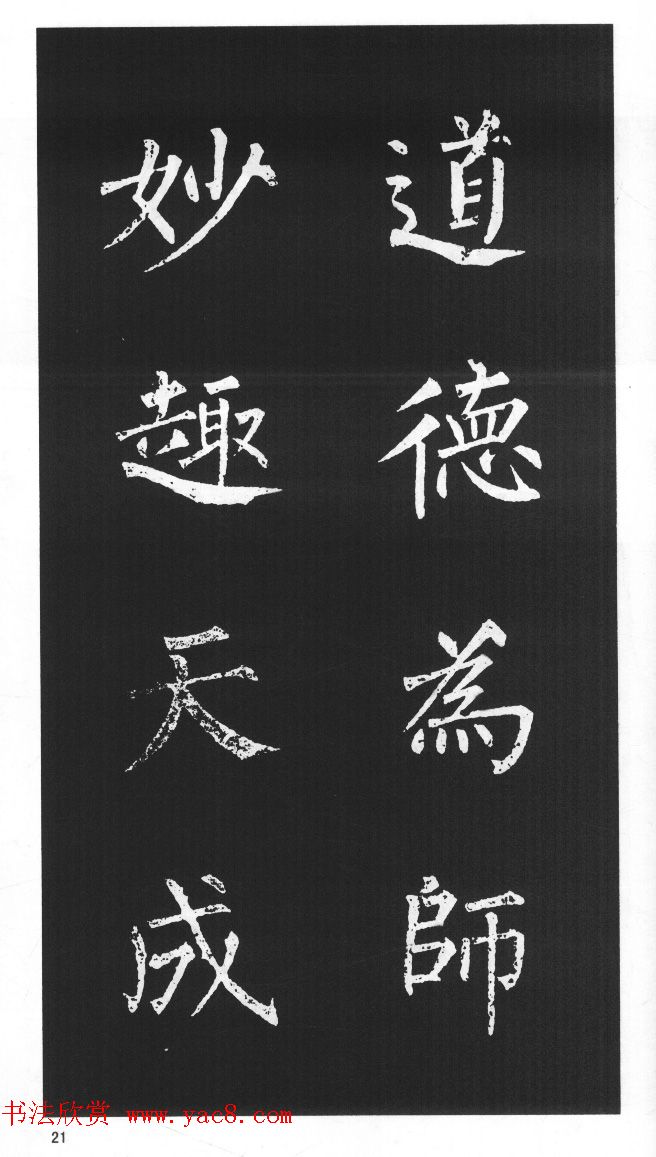 道德為師
妙趣天成
书法欣赏 www.yac8.com
21